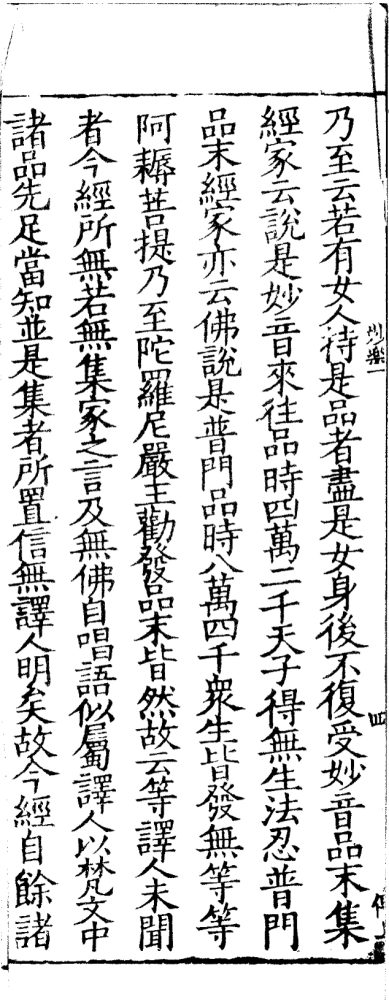 乃至云若有女人待是品者盡是女身後不復受妙音品末集
經家云說是妙音來往品時四萬二千天子得無生法忍普門
品末經家亦云佛說是普門品時八萬四千衆生皆發無等等
阿耨菩提乃至陀羅尼嚴王勸發品末皆然故云等譯人未聞
者今經所無若無集家之言及無佛自唱語似屬譯人以梵文中
諸品先足當知並是集者所置信無譯人明矣故今經自餘諸